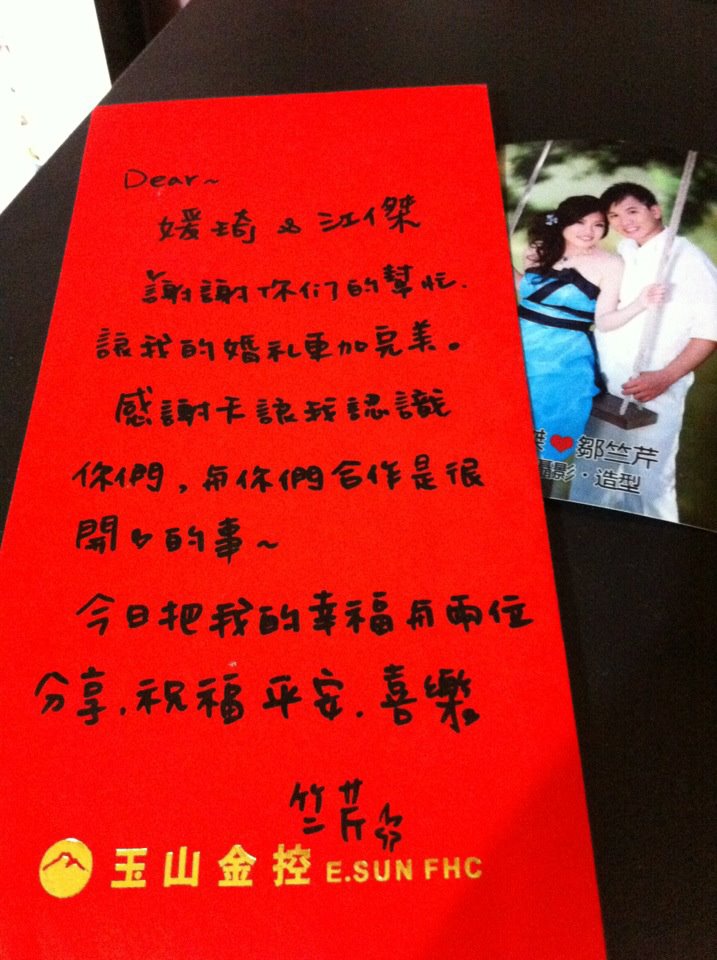 Dear~
媛琦 & 江傑
謝謝你们的幫忙.
讓我的婚礼更加完美。
感謝卡讓我認識
你們,与你們合作是很
開心的事~
今日把我的幸福与兩位
分享.祝福平安.喜樂。
竺芹
玉山金控 E.SUN FHC
傑❤鄒竺芹
攝影·造型